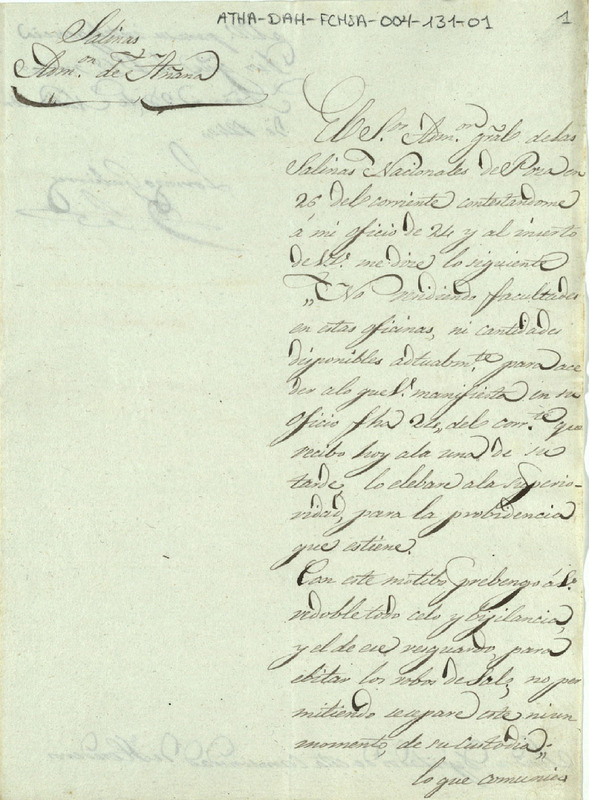 ATHA-DAH-FCHSA-004-131-01
1
Salinas
Admon. de Añana
El Sor. Admon. gral de las
Salinas Nacionales de Poza en
26 del corriente contestandome
á mi oficio de 24 y al inserto
de V. me dize lo siguiente
"No rindiendo facultades
en estas oficinas, ni cantidades
disponibles actualmte. para acce
der a lo que V. manifiesta en su
oficio fha 24,, del corrte. que
recibo hoy ala una de su
tarde, lo elebare ala Superio-
ridad, para la probidencia
que estime.
Con este motibo prebengo á V.
redoble todo celo y bijilancia,
y el de ese resguardo, para
ebitar los robos de Sal, no per
mitiendo se separe este ni un
momento, de su custodia,,
lo que comunico